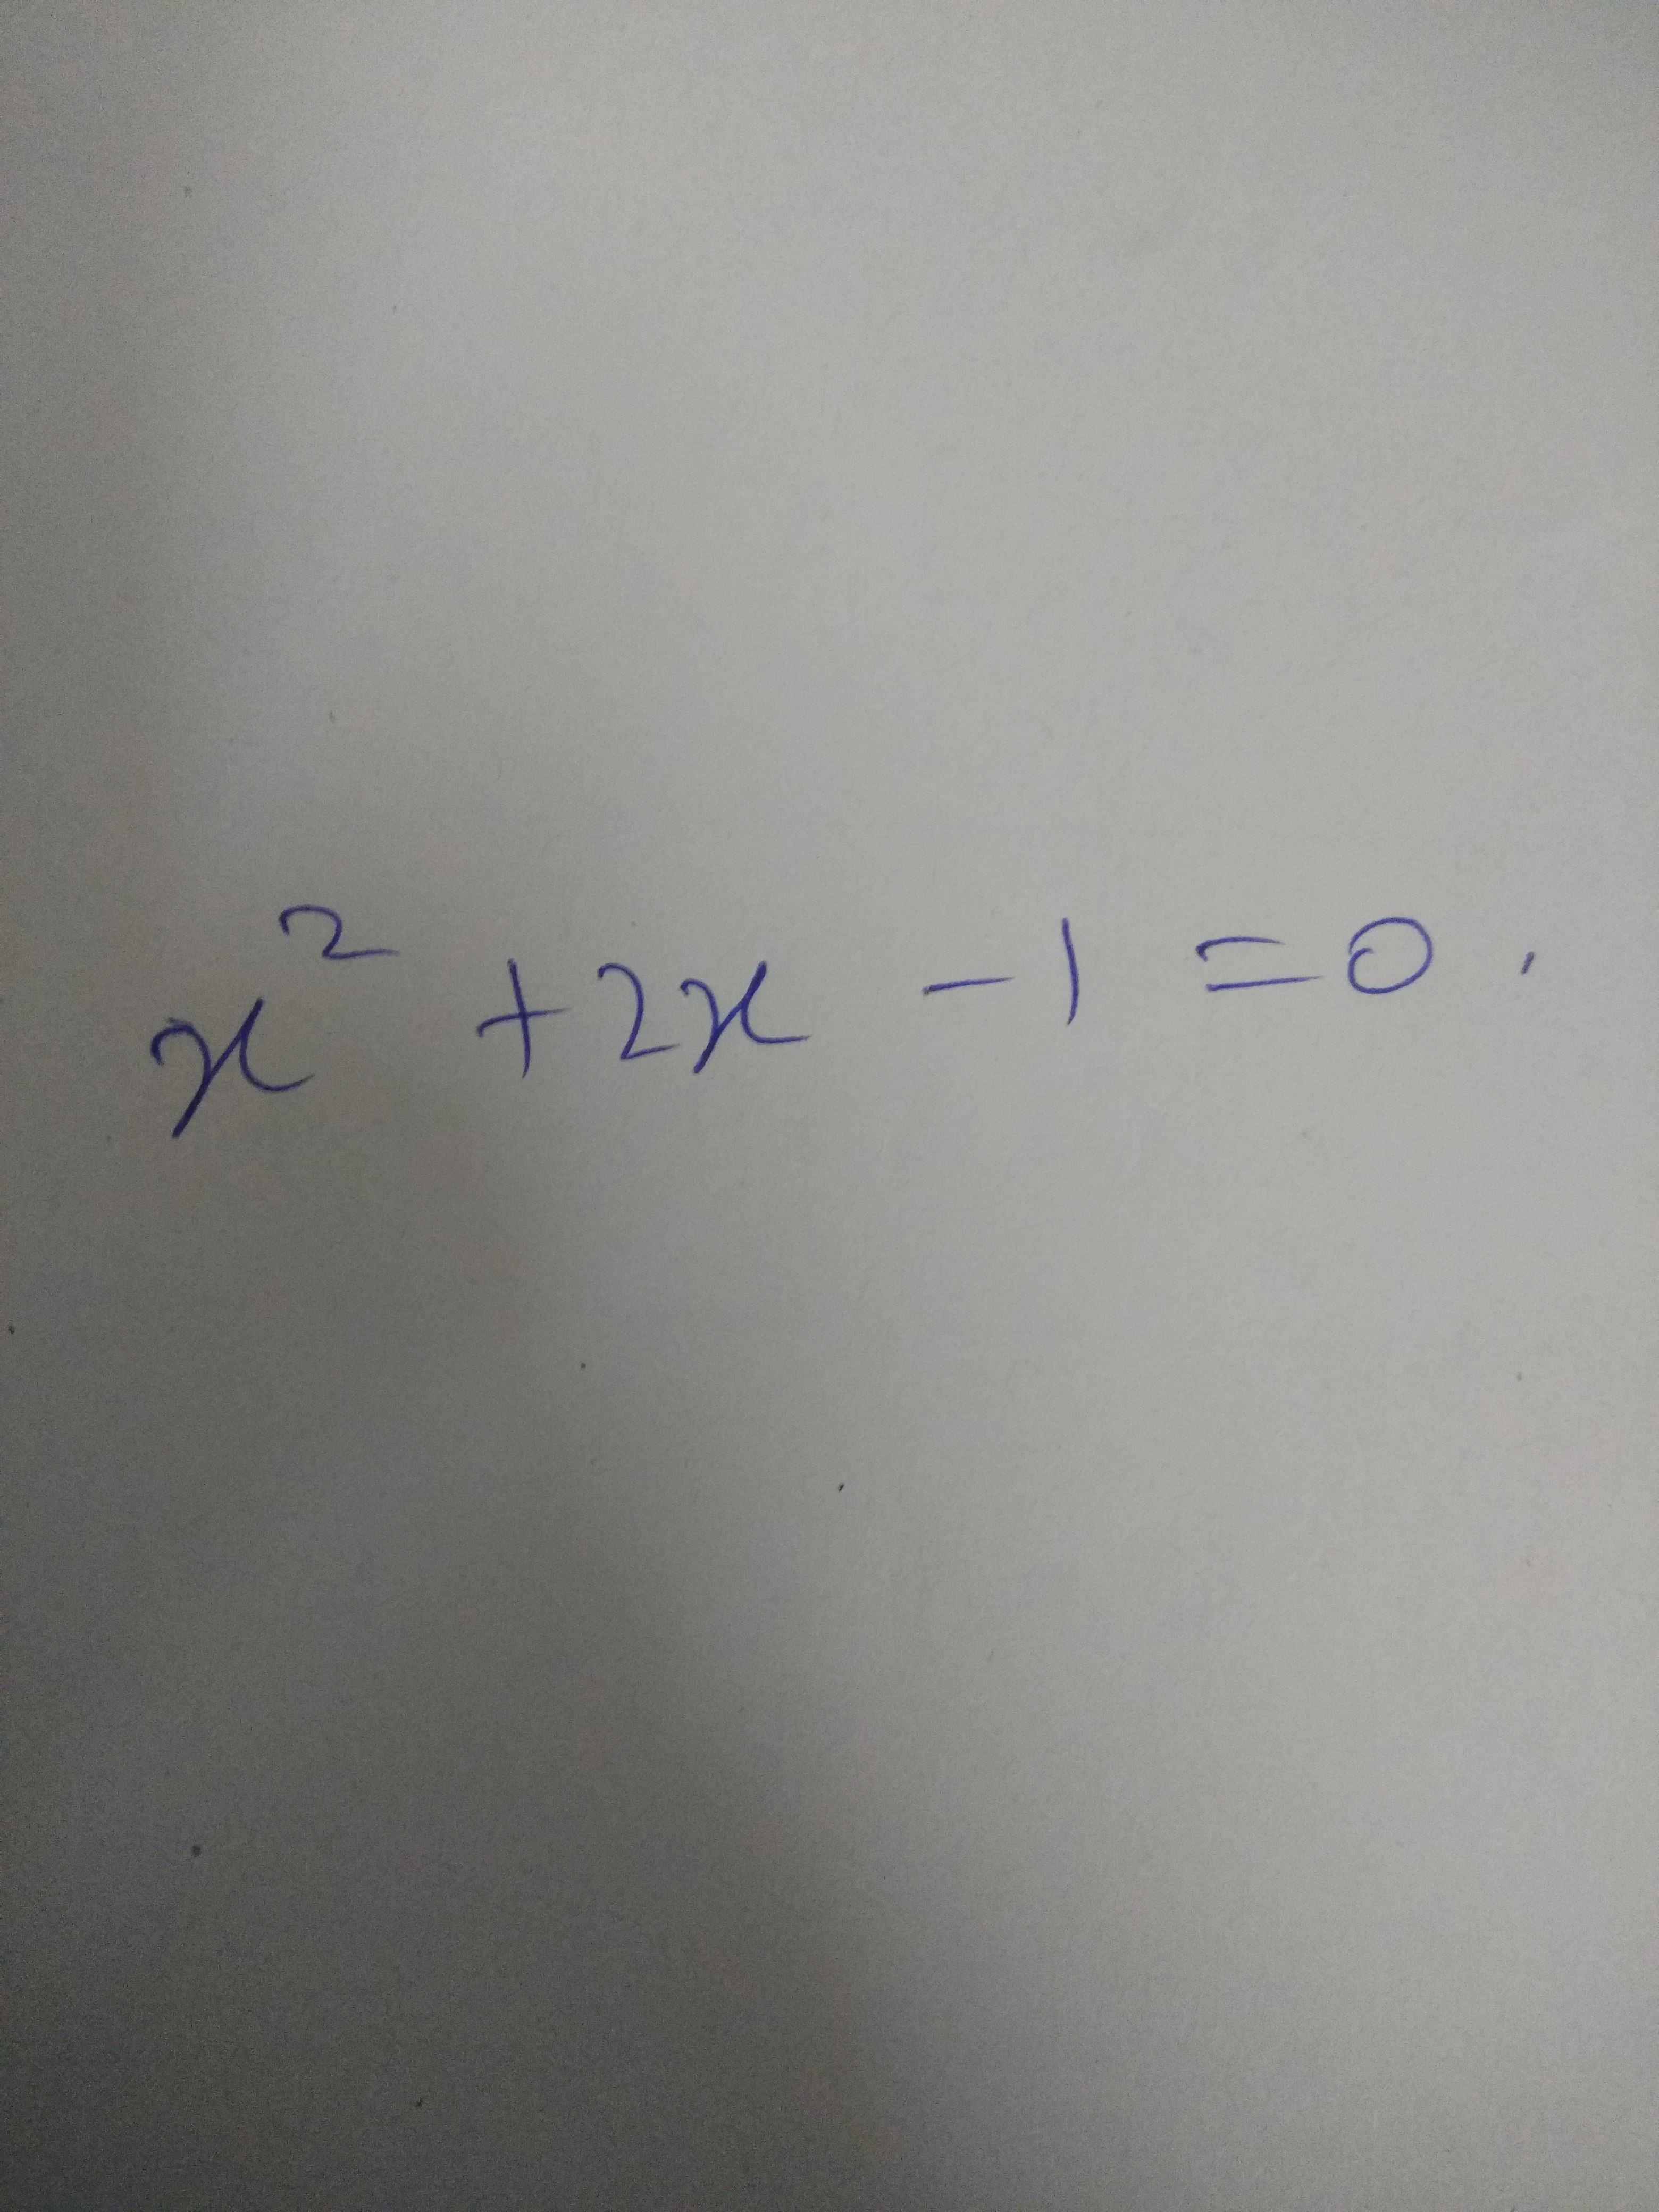 x² + 2x - 1 = 0.